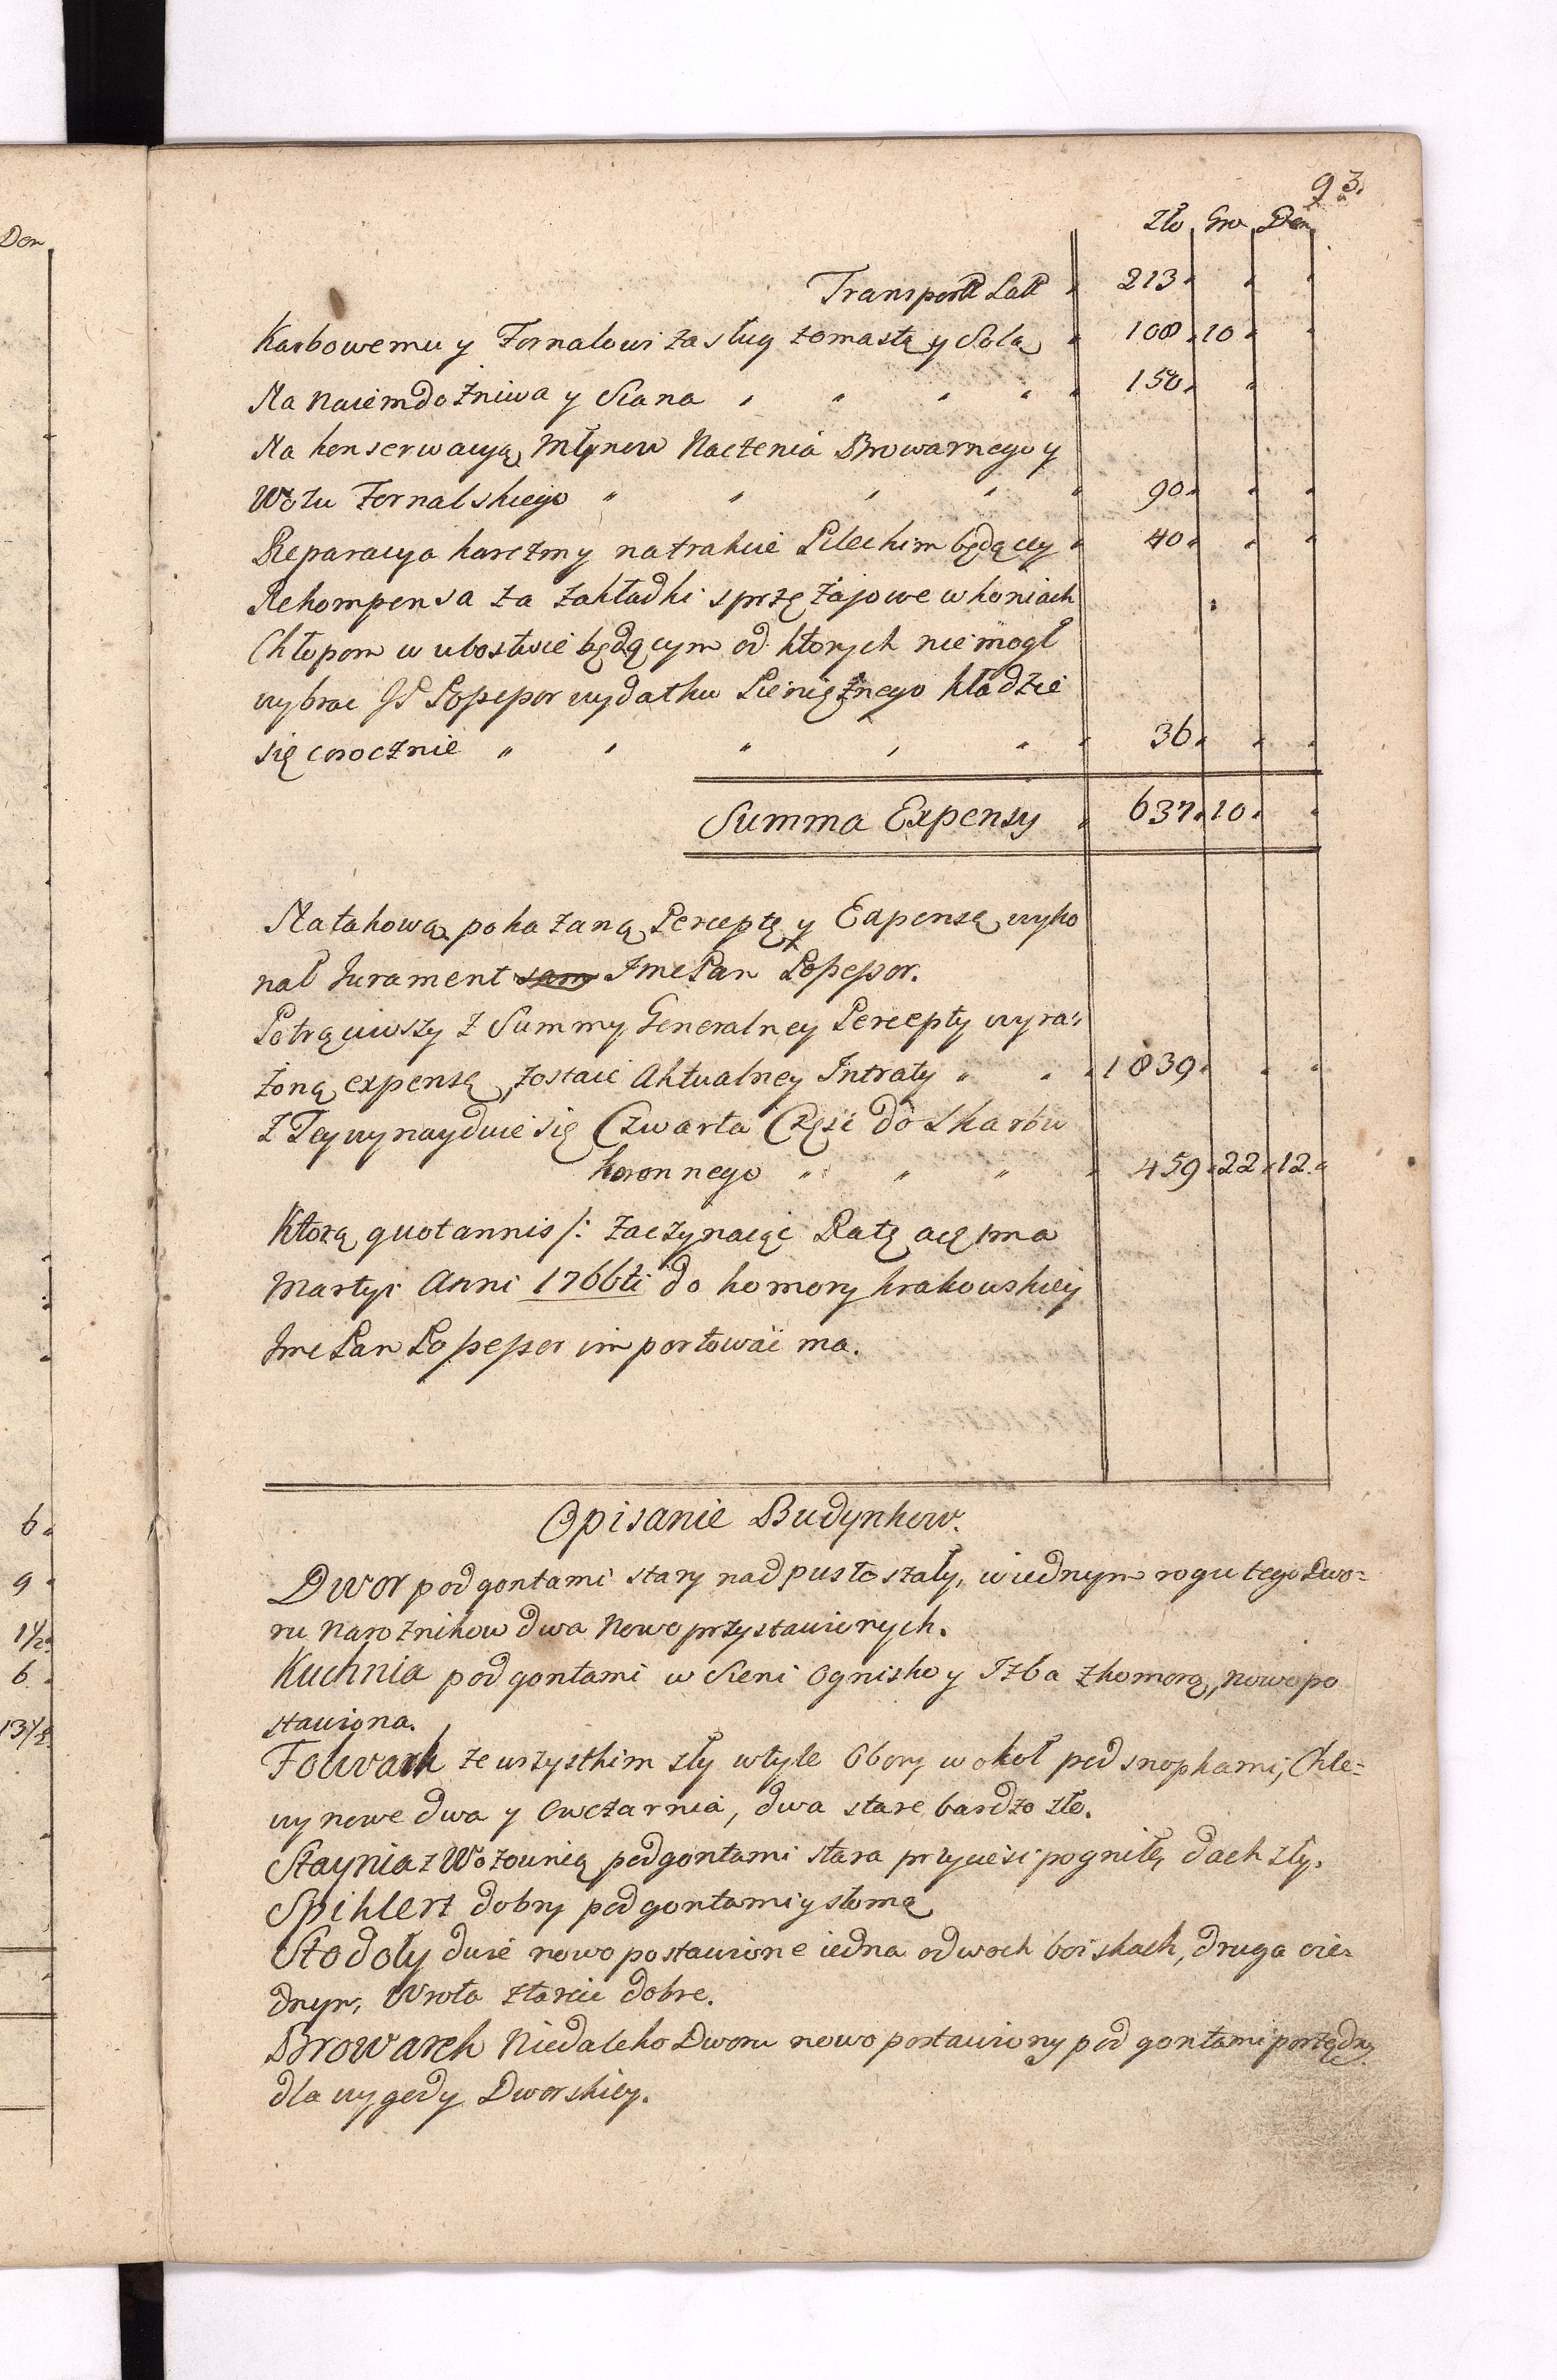 93.
Zło Gro Den
Transport Lat 213
Karbowemu y Fornalowi zasług zomastą y Solą 108 10
Na naiem do żniwa y Siana 150
Na konserwacyą Młynow Naczenia Browarnego y
Wozu Fornalskiego 90
Reparacya karczmy na trakcie Pileckim będącey 40
Rekompensa za zakładki sprzężajowe w koniach
Chłopom w ubostwie będącym od ktorych nie mogł
wybrac JP Possessor wydatku Pieniężnego kładzie
się corocznie 36
Summa Expensy 637 10
Na takową pokazaną Perceptę y Expensę wyko
nał Jurament Jmc Pan Possessor.
Potrąciwszy z Summy Generalney Percepty wyra:
żoną expensę, zostaie Aktualney Intraty 1839
Z Tey wynayduie się Czwarta Część do Skarbu
koronnego 459 22 12
Ktorą quotannis /: zaczynaiąc Ratę a 1ma
Martyi Anni 1766ti do komory krakowskiey
Jmc Pan Possessor importować ma.
Opisanie Budynkow.
Dwor pod gontami stary nadpustoszały, w iednym rogu tego Dwo=
ru Narożnikow dwa Nowo przystawionych.
Kuchnia pod gontami w Sieni Ognisko y Izba z komorą, nowo po
stawiona.
Folwark ze wszystkim zły w tyle Obory w okoł pod snopkami, Chle=
wy nowe dwa y Owczarnia, dwa stare bardzo złe.
Staynia z Wozownią pod gontami stara przyciesi pogniłe, dach zły.
Spiklerz dobry pod gontami y słomą
Stodoły dwie nowo postawione iedna o dwoch boiskach, druga o ie=
dnym, Wrota ztarcic dobre.
Browarek Niedaleko Dworu nowo postawiony pod gontami porządny
dla wygody Dworskiey.
Den
6
9
1½
6
13½